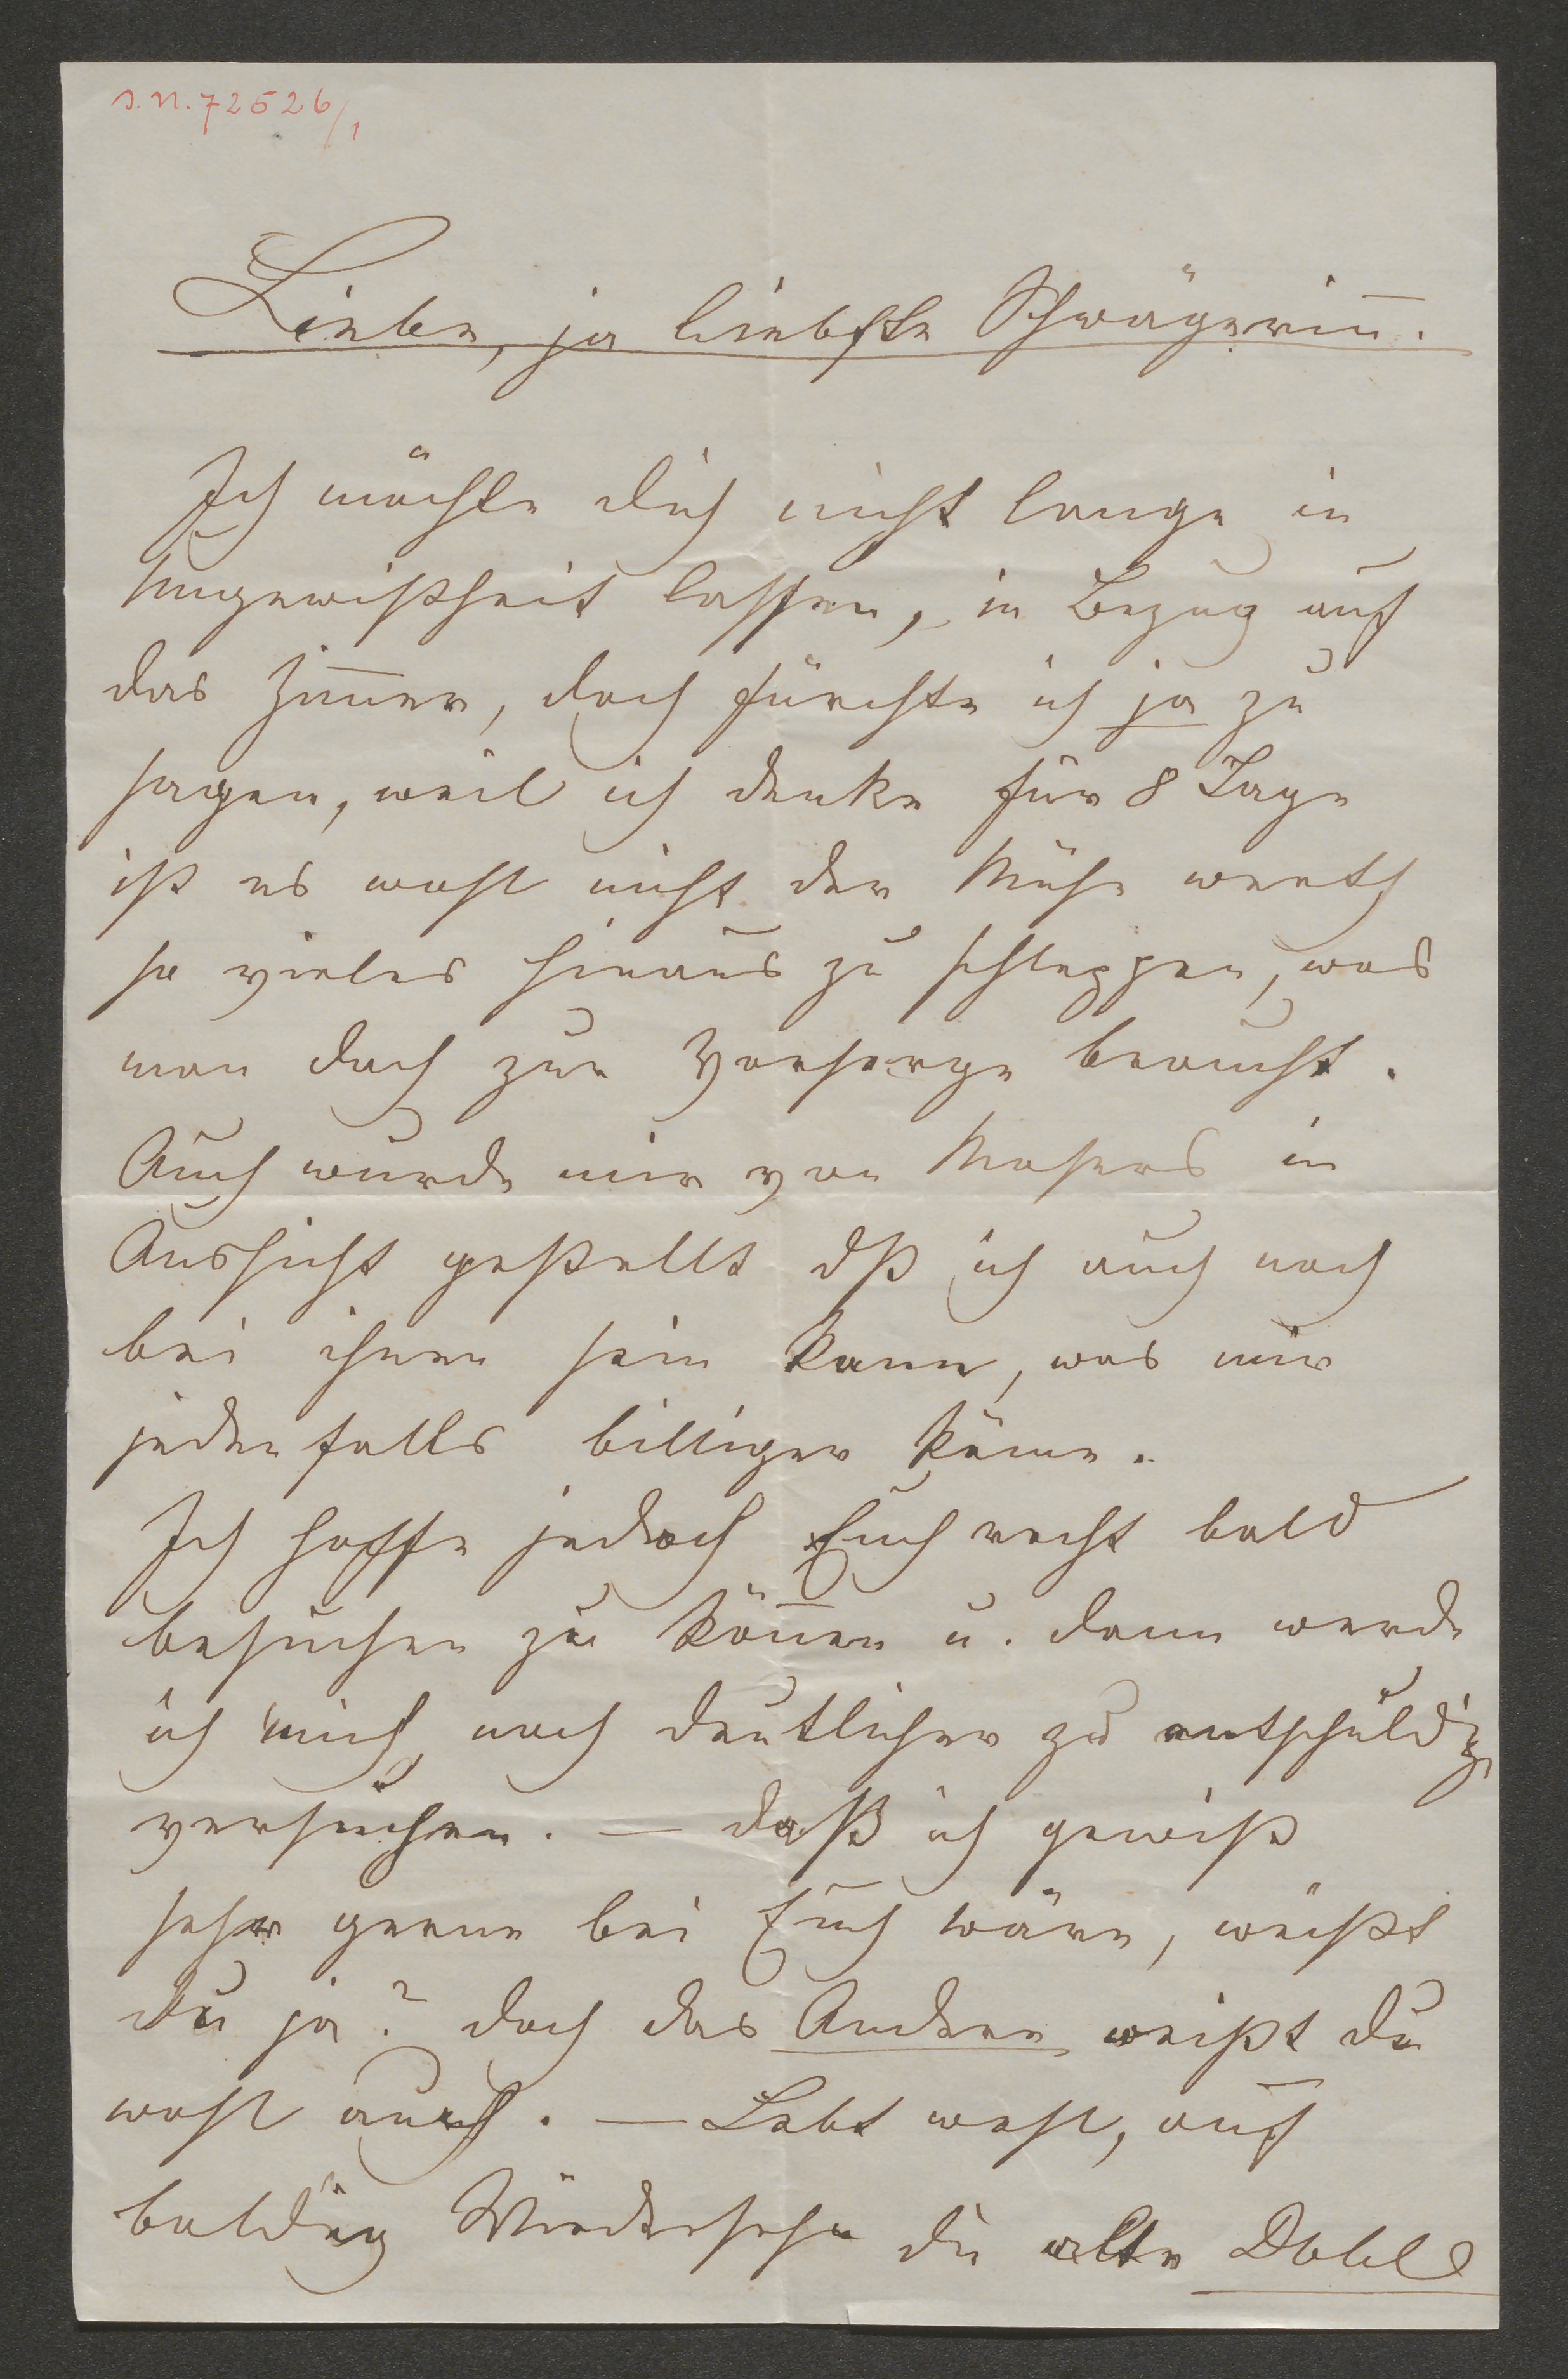 J.N. 72526/1
Liebe, ja liebste Schwägerin̄.
Ich möchte dich nicht lange in
Ungewißheit lassen, in Bezug auf
das Zim̄er, doch fürchte ich ja zu
sagen, weil ich denke für 8 Tage
ist es wohl nicht der Mühe werth
so vieles hinaus zu schleppen, was
man doch zur Vorsorge braucht.
Auch wurde mir von Mosers in
Aussicht gestellt dß ich auch noch
bei ihnen sein kann, was mir
jedenfalls billiger käme.
Ich hoffe jedoch Euch recht bald
besuchen zu kön̄en u. dann werde
ich mich noch deutlicher zu entschuldig
versuchen. — daß ich gewiß
sehr gerne bei Euch wäre, weißt
du ja? doch das Andere weißt du
wohl auch. — Lebt wohl, auf
baldig Wiedersehn die alte